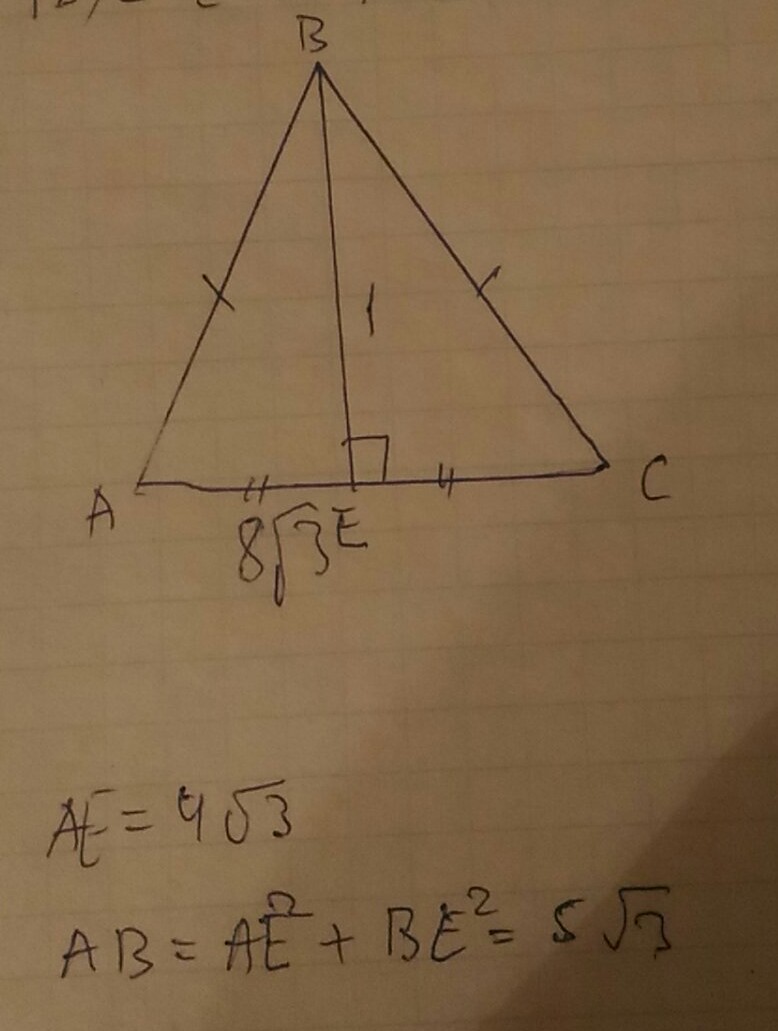 B
1
A
C
8√3
E
AE = 4√3
AB = AE² + BE² = 5√3